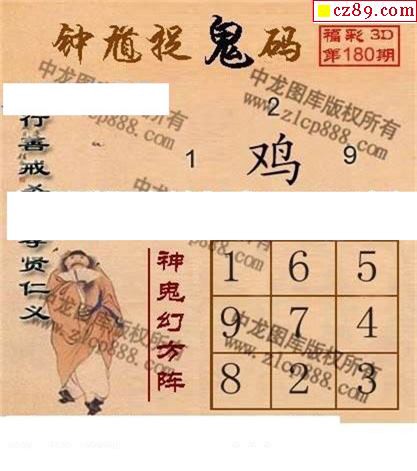 cz89.com
钟馗捉鬼码
福彩3D
第180期
中龙图库版权所有
www.zlcp888.com
2
1 鸡 9
行善戒
贤仁义
神鬼幻方阵
1 6 5
9 7 4
8 2 3
中龙图库版权所有
www.zlcp888.com
中龙图库版权所有
www.zlcp888.com